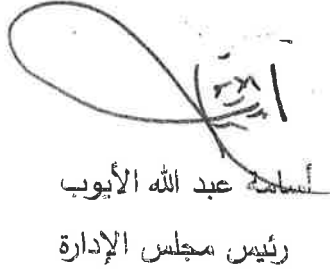 أسامة عبد الله الأيوب
رئيس مجلس الإدارة